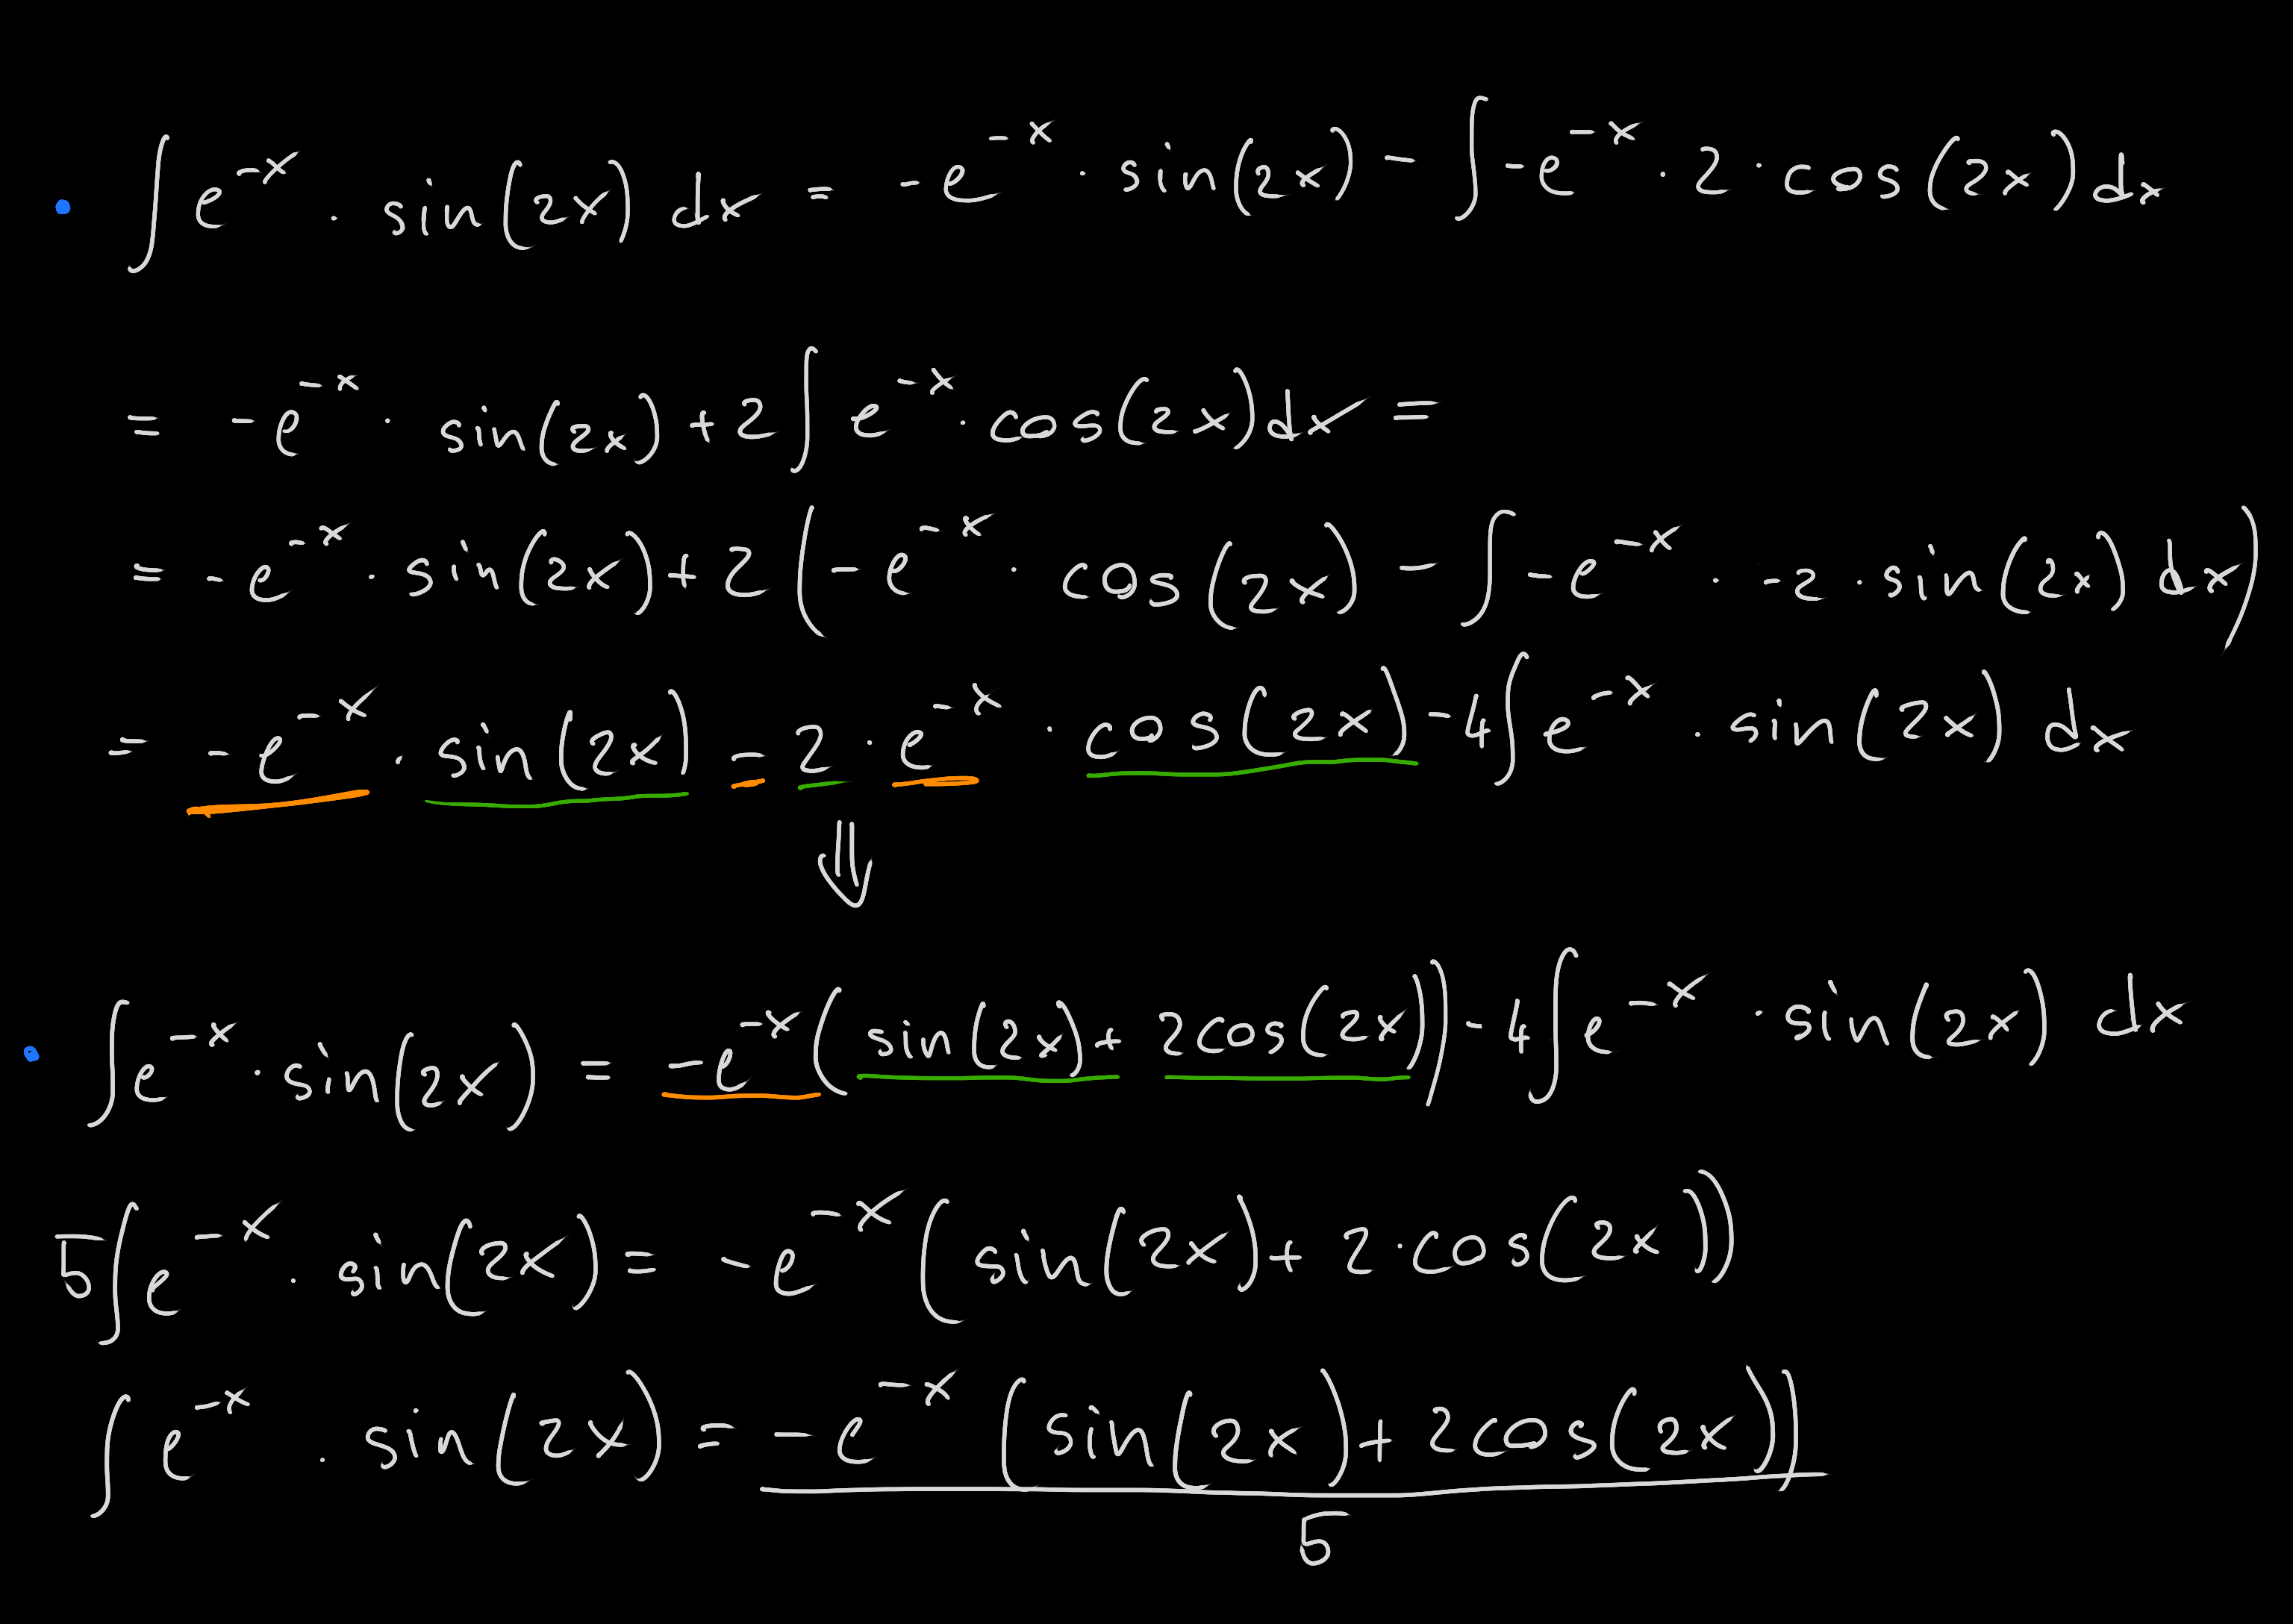 • ∫ e^{-x} · sin(2x) dx = -e^{-x} · sin(2x) - ∫ -e^{-x} · 2 · cos(2x) dx
= -e^{-x} · sin(2x) + 2 ∫ e^{-x} · cos(2x) dx =
= -e^{-x} · sin(2x) + 2 (-e^{-x} · cos(2x) - ∫ -e^{-x} · -2 · sin(2x) dx)
= -e^{-x} · sin(2x) - 2 · e^{-x} · cos(2x) - 4 ∫ e^{-x} · sin(2x) dx
⇓
• ∫ e^{-x} · sin(2x) = -e^{-x} (sin(2x) + 2cos(2x)) - 4 ∫ e^{-x} · sin(2x) dx
5 ∫ e^{-x} · sin(2x) = -e^{-x} (sin(2x) + 2 · cos(2x))
∫ e^{-x} · sin(2x) = -e^{-x} (sin(2x) + 2cos(2x))
5